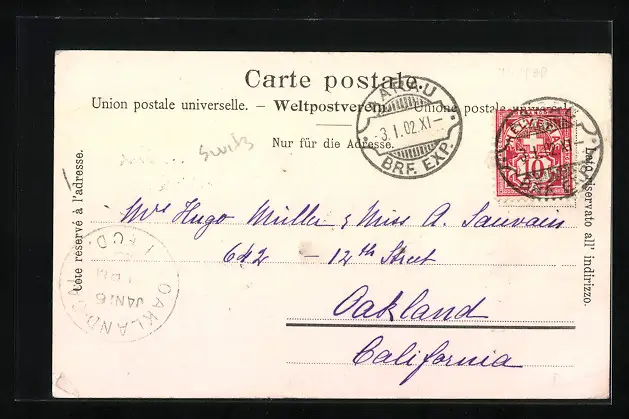 Carte postale.
Union postale universelle. — Weltpostverein. — Unione postale universale.
Nur für die Adresse.
Côté réservé à l'adresse.
Lato riservato all' indirizzo.
AARAU
-3.I.02.XI-
BRF. EXP.
HELVETIA
10
Switz
Mrs Hugo Müller & Miss A. Sauvain
642 – 12th Street
Oakland
California
OAKLAND
JAN 6